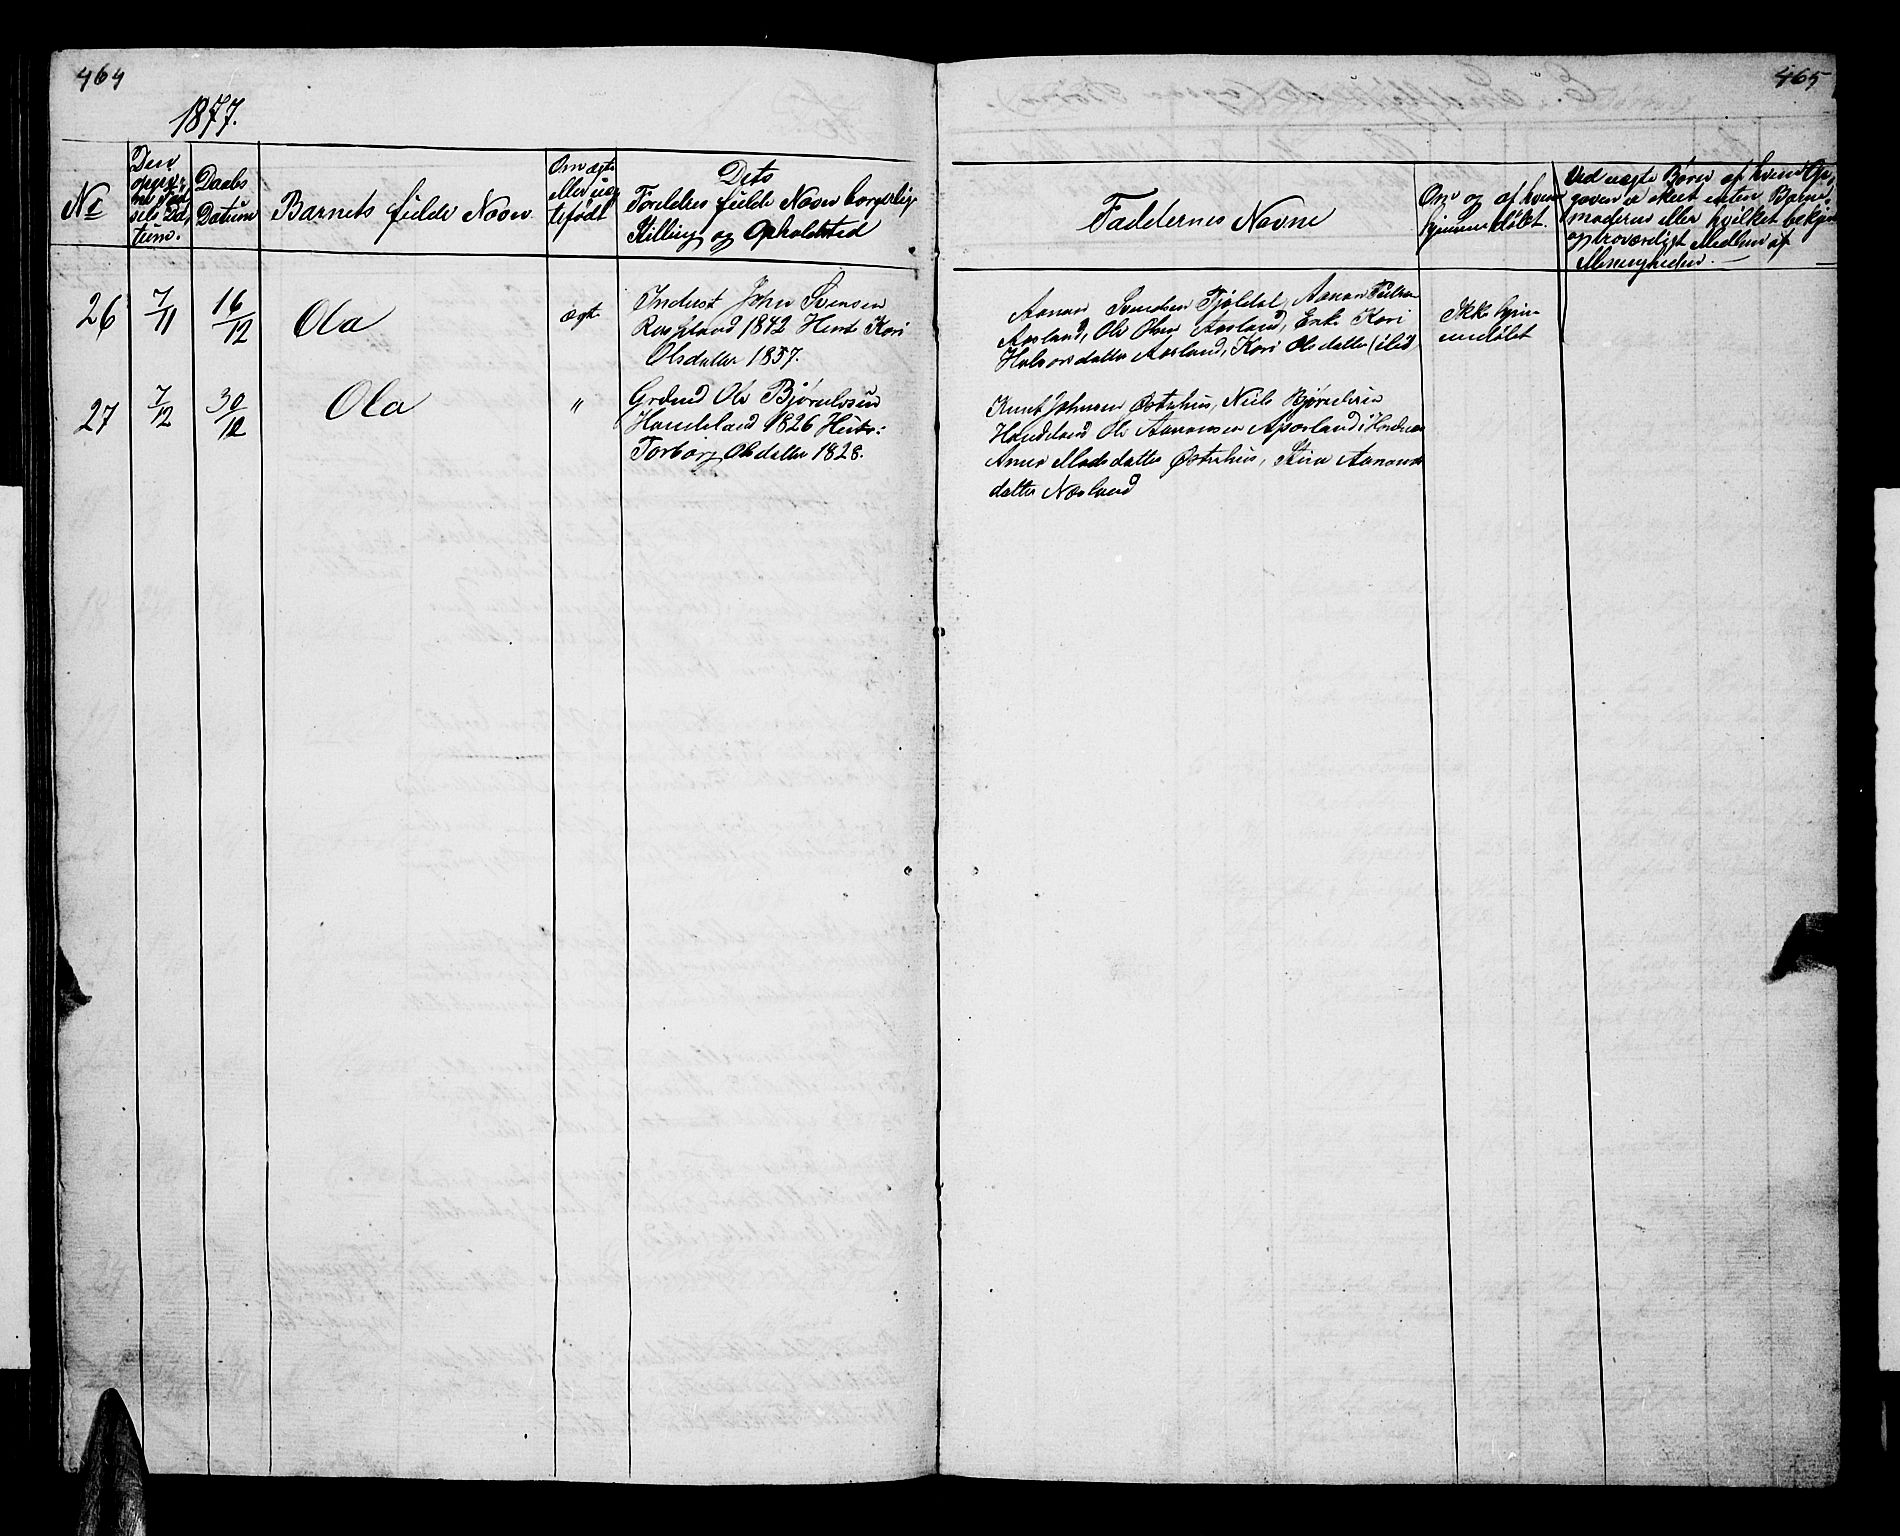 464
1877.
No
Den
opgiv:
ne Fød
sels Da
tum.
Daabs
Datum
Barnets fulde Navn
Om ægte
eller uæg
tefødt
Dets
Forældres fulde Navn borgerlig
Stilling og Opholdsted
26
7/11
16/12
Ola
ægte
Inderst John Svensen
Rusland 1842 Hust Kari
Olsdatter 1837.
27
7/12
30/12
Ola
"
Grdmd Ole Bjørnulvsen
Handeland 1826 Hust:
Torborg Olsdatter 1828.
465
Faddernes Navne
Om og af hvem
hjemmedøbt.
Ved uægte Børn af hvem Op,
gaven er skeet enten Barne,
moderen eller hvilket bekjen
og troværdigt Medlem af
Menigheden.
Aanon Svendsen Fjeldal, Aanon
Aasland, Ole Olsen Aasland, Enke Kari
Halvorsdatter Aasland, Kari Olsdatter ibid
Ikke hjem
medøbt
Knut Johnsen Østerhus, Niels Bjørnulvsen
Handeland Ole Aanonsen
Anne Madsdatter Østerhus, Siri Aanons
datter Næsland